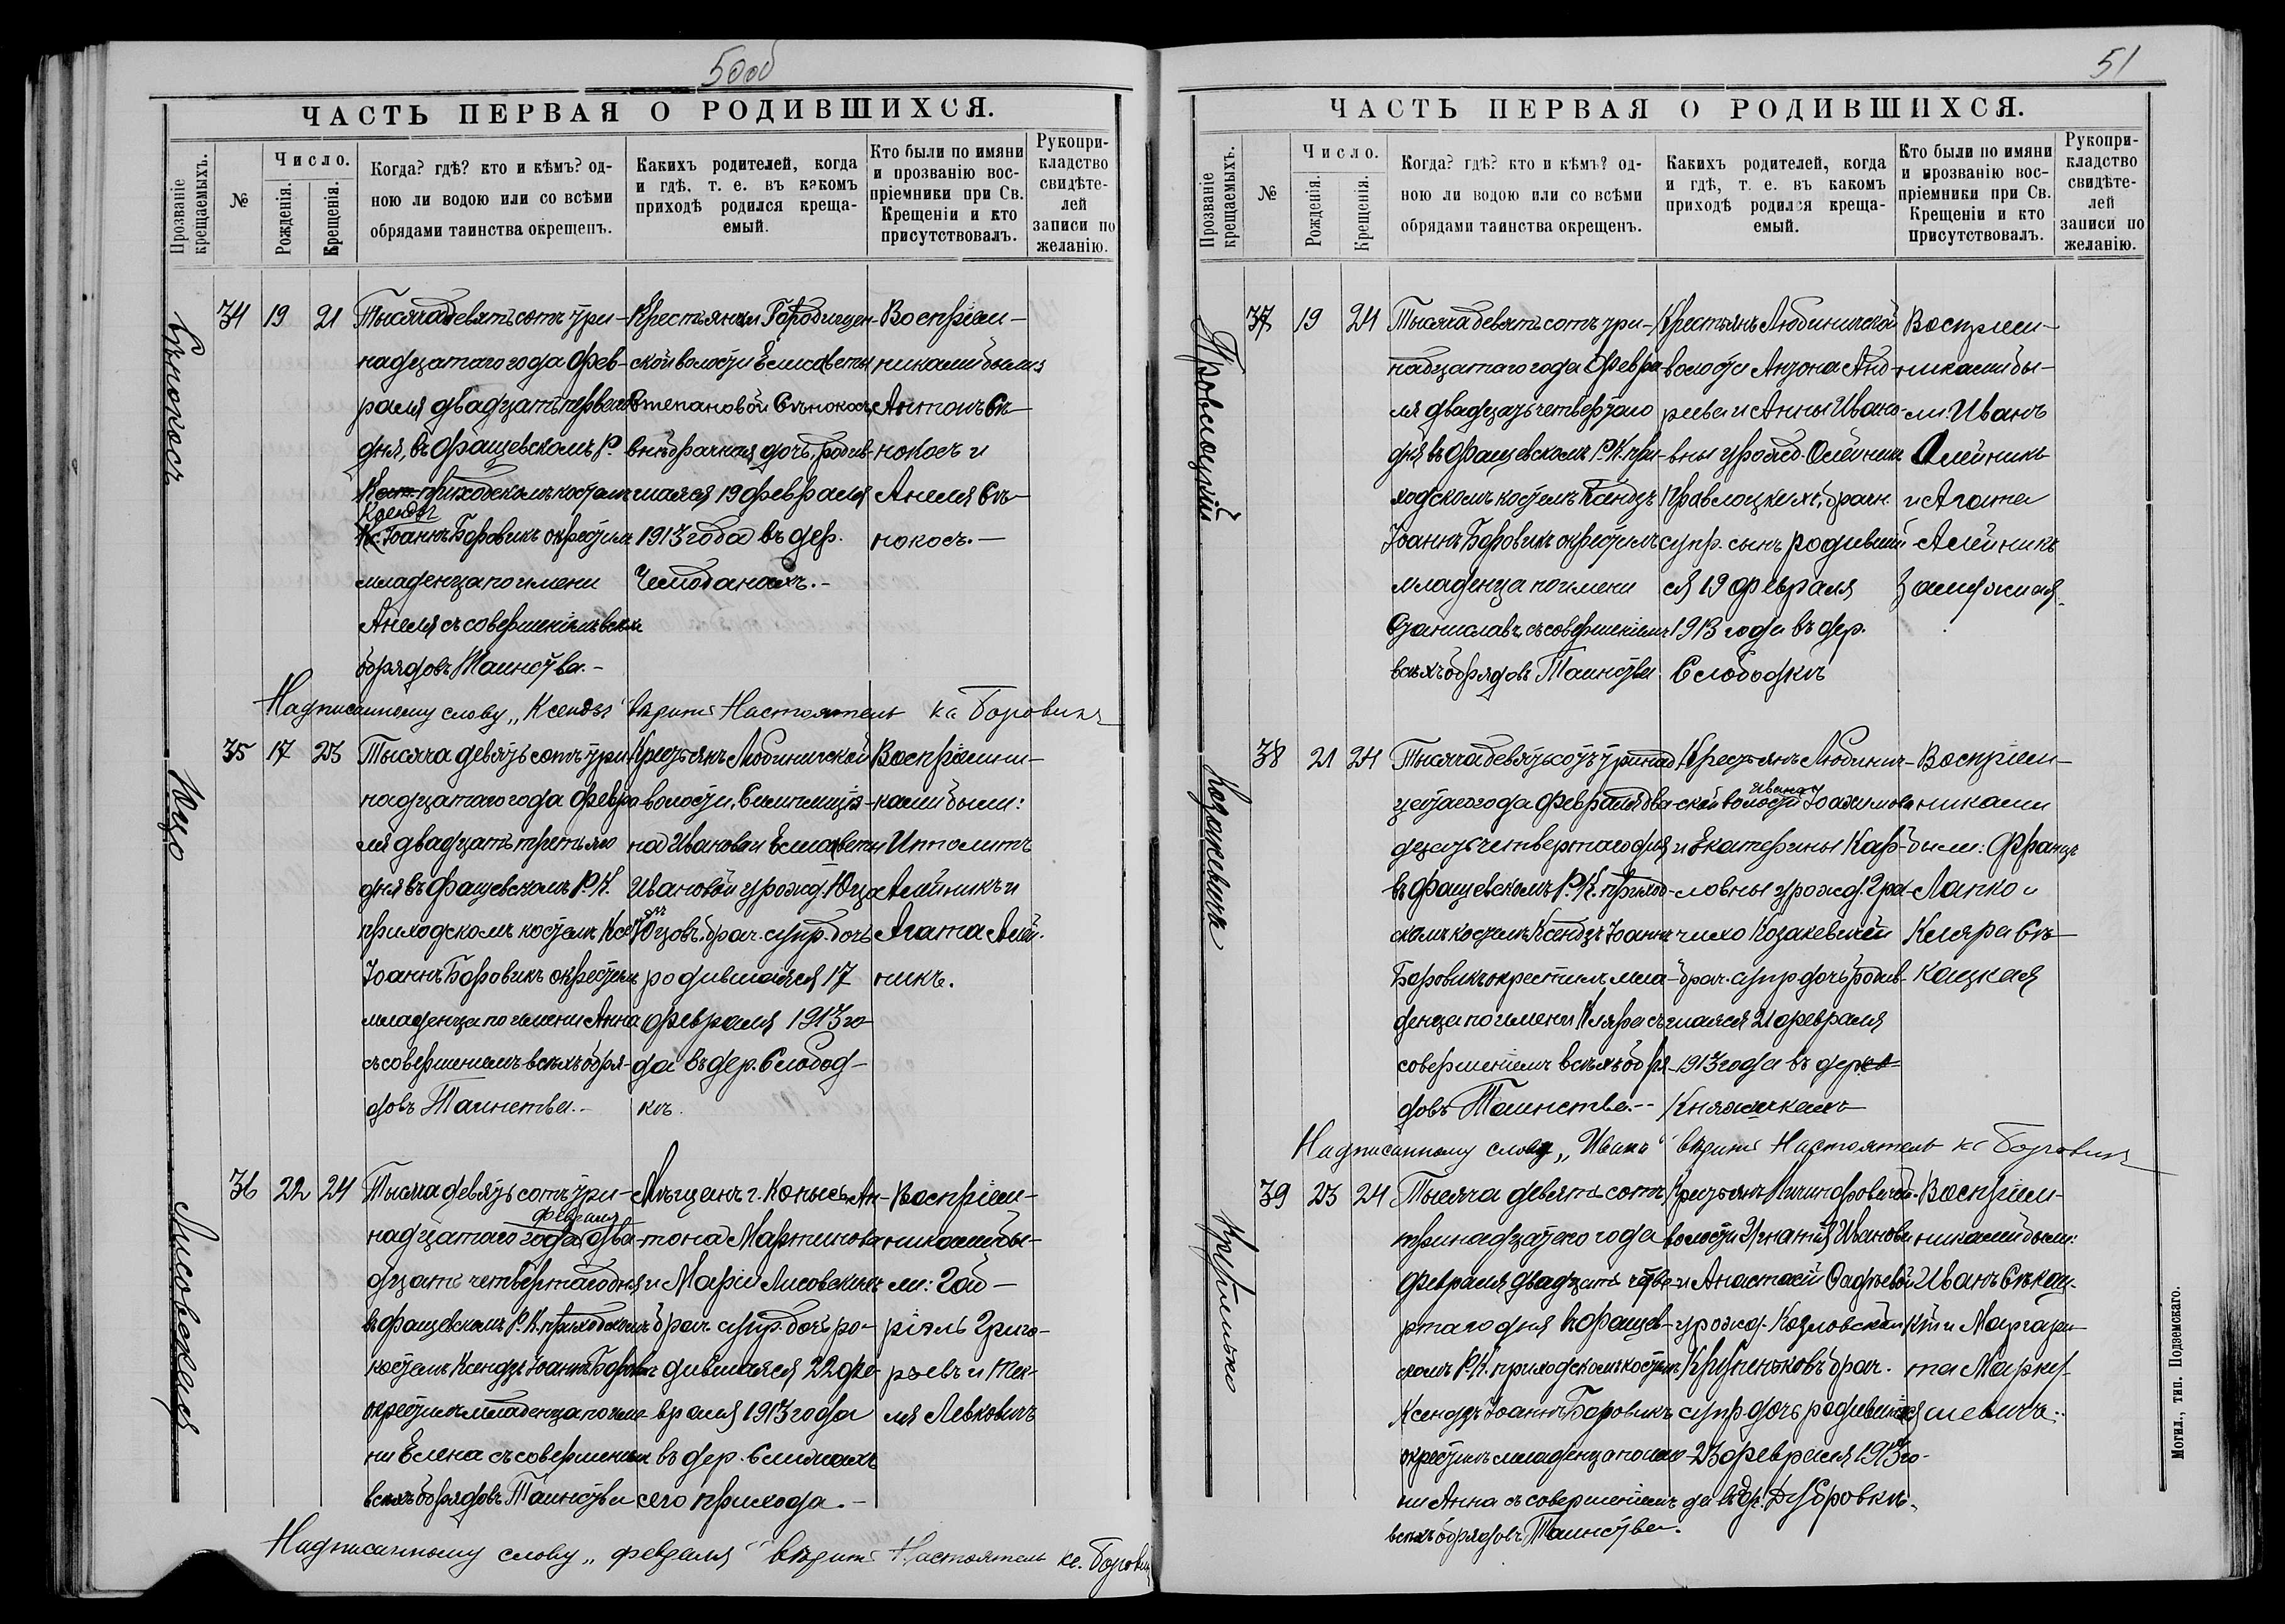 50об
ЧАСТЬ ПЕРВАЯ О РОДИВШИХСЯ.
Прозваніе крещаемыхъ.
№
Число.
Рожденія.
Крещенія.
Когда? гдѣ? кто и кѣмъ? од-
ною ли водою или со всѣми
обрядами таинства окрещенъ.
Какихъ родителей, когда
и гдѣ, т. е. въ какомъ
приходѣ родился креща-
емый.
Кто были по имяни
и прозванію вос-
пріемники при Св.
Крещеніи и кто
присутствовалъ.
Рукопри-
кладство
свидѣте-
лей
записи по
желанію.
Сѣнокосъ
34 19 21
Тысяча девятьсотъ три-
надцатаго года фев-
раля двадцать перваго
дня, въ Фащевскомъ Р.
Кат. приходскомъ костелѣ
Ксендзъ
Кс. Іоаннъ Боровикъ окрестилъ
младенца по имени
Анеля съ совершеніемъ всѣхъ
обрядовъ Таинства.-
Крестьянки Городищен-
ской волости Елисаветы
Степановой Сѣнокосъ
внѣбрачная дочь, родив-
шаяся 19 февраля
1913 года въ дер.
Чемоданахъ.-
Воспріем-
никами были
Антонъ Сѣ-
нокосъ и
Анеля Сѣ-
нокосъ.-
Надписанному слову „Ксендзъ" вѣрить Настоятель кс Боровикъ
Юцо
35 17 23
Тысяча девятьсотъ три-
надцатаго года февра-
ля двадцать третьяго
дня въ Фащевскомъ Р.К.
приходскомъ костелѣ Ксендзъ
Іоаннъ Боровикъ окрестилъ
младенца по имени Анна
съ совершеніемъ всѣхъ обря-
довъ Таинства.-
Крестьянъ Любиничской
волости,
на Иванова и Елисаветы
Ивановой урожд. Юцо
Юцовъ, брач. супр. дочь
родившаяся 17
февраля 1913 го-
да въ дер. Слобод-
кѣ.
Воспріемни-
ками были:
Ипполитъ
Алейникъ и
Агата Алей-
никъ.
Лисовская
36 22 24
Тысяча девятьсотъ три-
февраля
надцатаго года два-
дцать четвертаго дня
въ Фащевскомъ Р.К. приходскомъ
костелѣ Ксендзъ Іоаннъ Боровикъ
окрестилъ младенца по име-
ни Елена съ совершеніемъ
всѣхъ обрядовъ Таинства
Мѣщанъ г. Копысь Ан-
тона Мартинова
и Маріи Лисовскихъ
брач. супр. дочь ро-
дившаяся 22 фе-
враля 1913 года
въ дер.
сего прихода.-
Воспріем-
никами бы-
ли: Габ-
ріэль Григо-
рьевъ и Тек-
ля Левковичъ
Надписанному слову „февраля" вѣрить Настоятель кс. Боровикъ
51
ЧАСТЬ ПЕРВАЯ О РОДИВШИХСЯ.
Прозваніе крещаемыхъ.
№
Число.
Рожденія.
Крещенія.
Когда? гдѣ? кто и кѣмъ? од-
ною ли водою или со всѣми
обрядами таинства окрещенъ.
Какихъ родителей, когда
и гдѣ, т. е. въ какомъ
приходѣ родился креща-
емый.
Кто были по имяни
и прозванію вос-
пріемники при Св.
Крещеніи и кто
присутствовалъ.
Рукопри-
кладство
свидѣте-
лей
записи по
желанію.
37 19 24
Тысяча девятьсотъ три-
надцатаго года февра-
ля двадцать четвертаго
дня въ Фащевскомъ Р.К. при-
ходскомъ костелѣ Ксендзъ
Іоаннъ Боровикъ окрестилъ
младенца по имени
Станиславъ, съ совершеніемъ
всѣхъ обрядовъ Таинства.
Крестьянъ Любиничской
волости Антона Анд-
реева и Анны Ивано-
вны урожд. Олейникъ
брачн.
супр. сынъ родивший-
ся 19 февраля
1913 года въ дер.
Слободкѣ
Воспріем-
никами бы-
ли: Иванъ
Олейникъ
и Агата
Алейникъ
замужняя.
Козакевичъ
38 21 24
Тысяча девятьсотъ тринад-
цатаго года февраля два-
дцать четвертаго дня
въ Фащевскомъ Р.К. приход-
скомъ костелѣ Ксендзъ Іоаннъ
Боровикъ окрестилъ мла-
денца по имени Кляра съ
совершеніемъ всѣхъ обря-
довъ Таинства.--
Крестьянъ Любинич-
Ивана
ской волости Іоакимова
и Екатерины Кар-
ловны урожд. Гра-
чихо Козакевичей
брач. супр. дочь родив-
шаяся 21 февраля
1913 года въ дерев.
Княжикахъ
Воспріем-
никами
были: Францъ
Лапко и
Кляра Сѣ-
кацкая
Надписанному слову „Ивана" вѣрить Настоятель кс Боровикъ
Крупенько
39 23 24
Тысяча девятьсотъ
тринадцатаго года
февраля двадцать четве-
ртаго дня въ Фащев-
скомъ Р.К. приходскомъ костелѣ
Ксендзъ Іоаннъ Боровикъ
окрестилъ младенца по име-
ни Анна съ совершеніемъ
всѣхъ обрядовъ Таинства.
Крестьянъ
волости Игнатія Иванова
и Анастасіи Фадѣевой
урожд. Козловской
Крупеньковъ брач.
супр. дочь родившаяся
23 февраля 1913 го-
да въ др. Дубровкѣ.
Воспріем-
никами были:
Иванъ Сѣкац-
кій и Марга́ри-
та Марку-
шевичъ.
Могил., тип. Подземскаго.